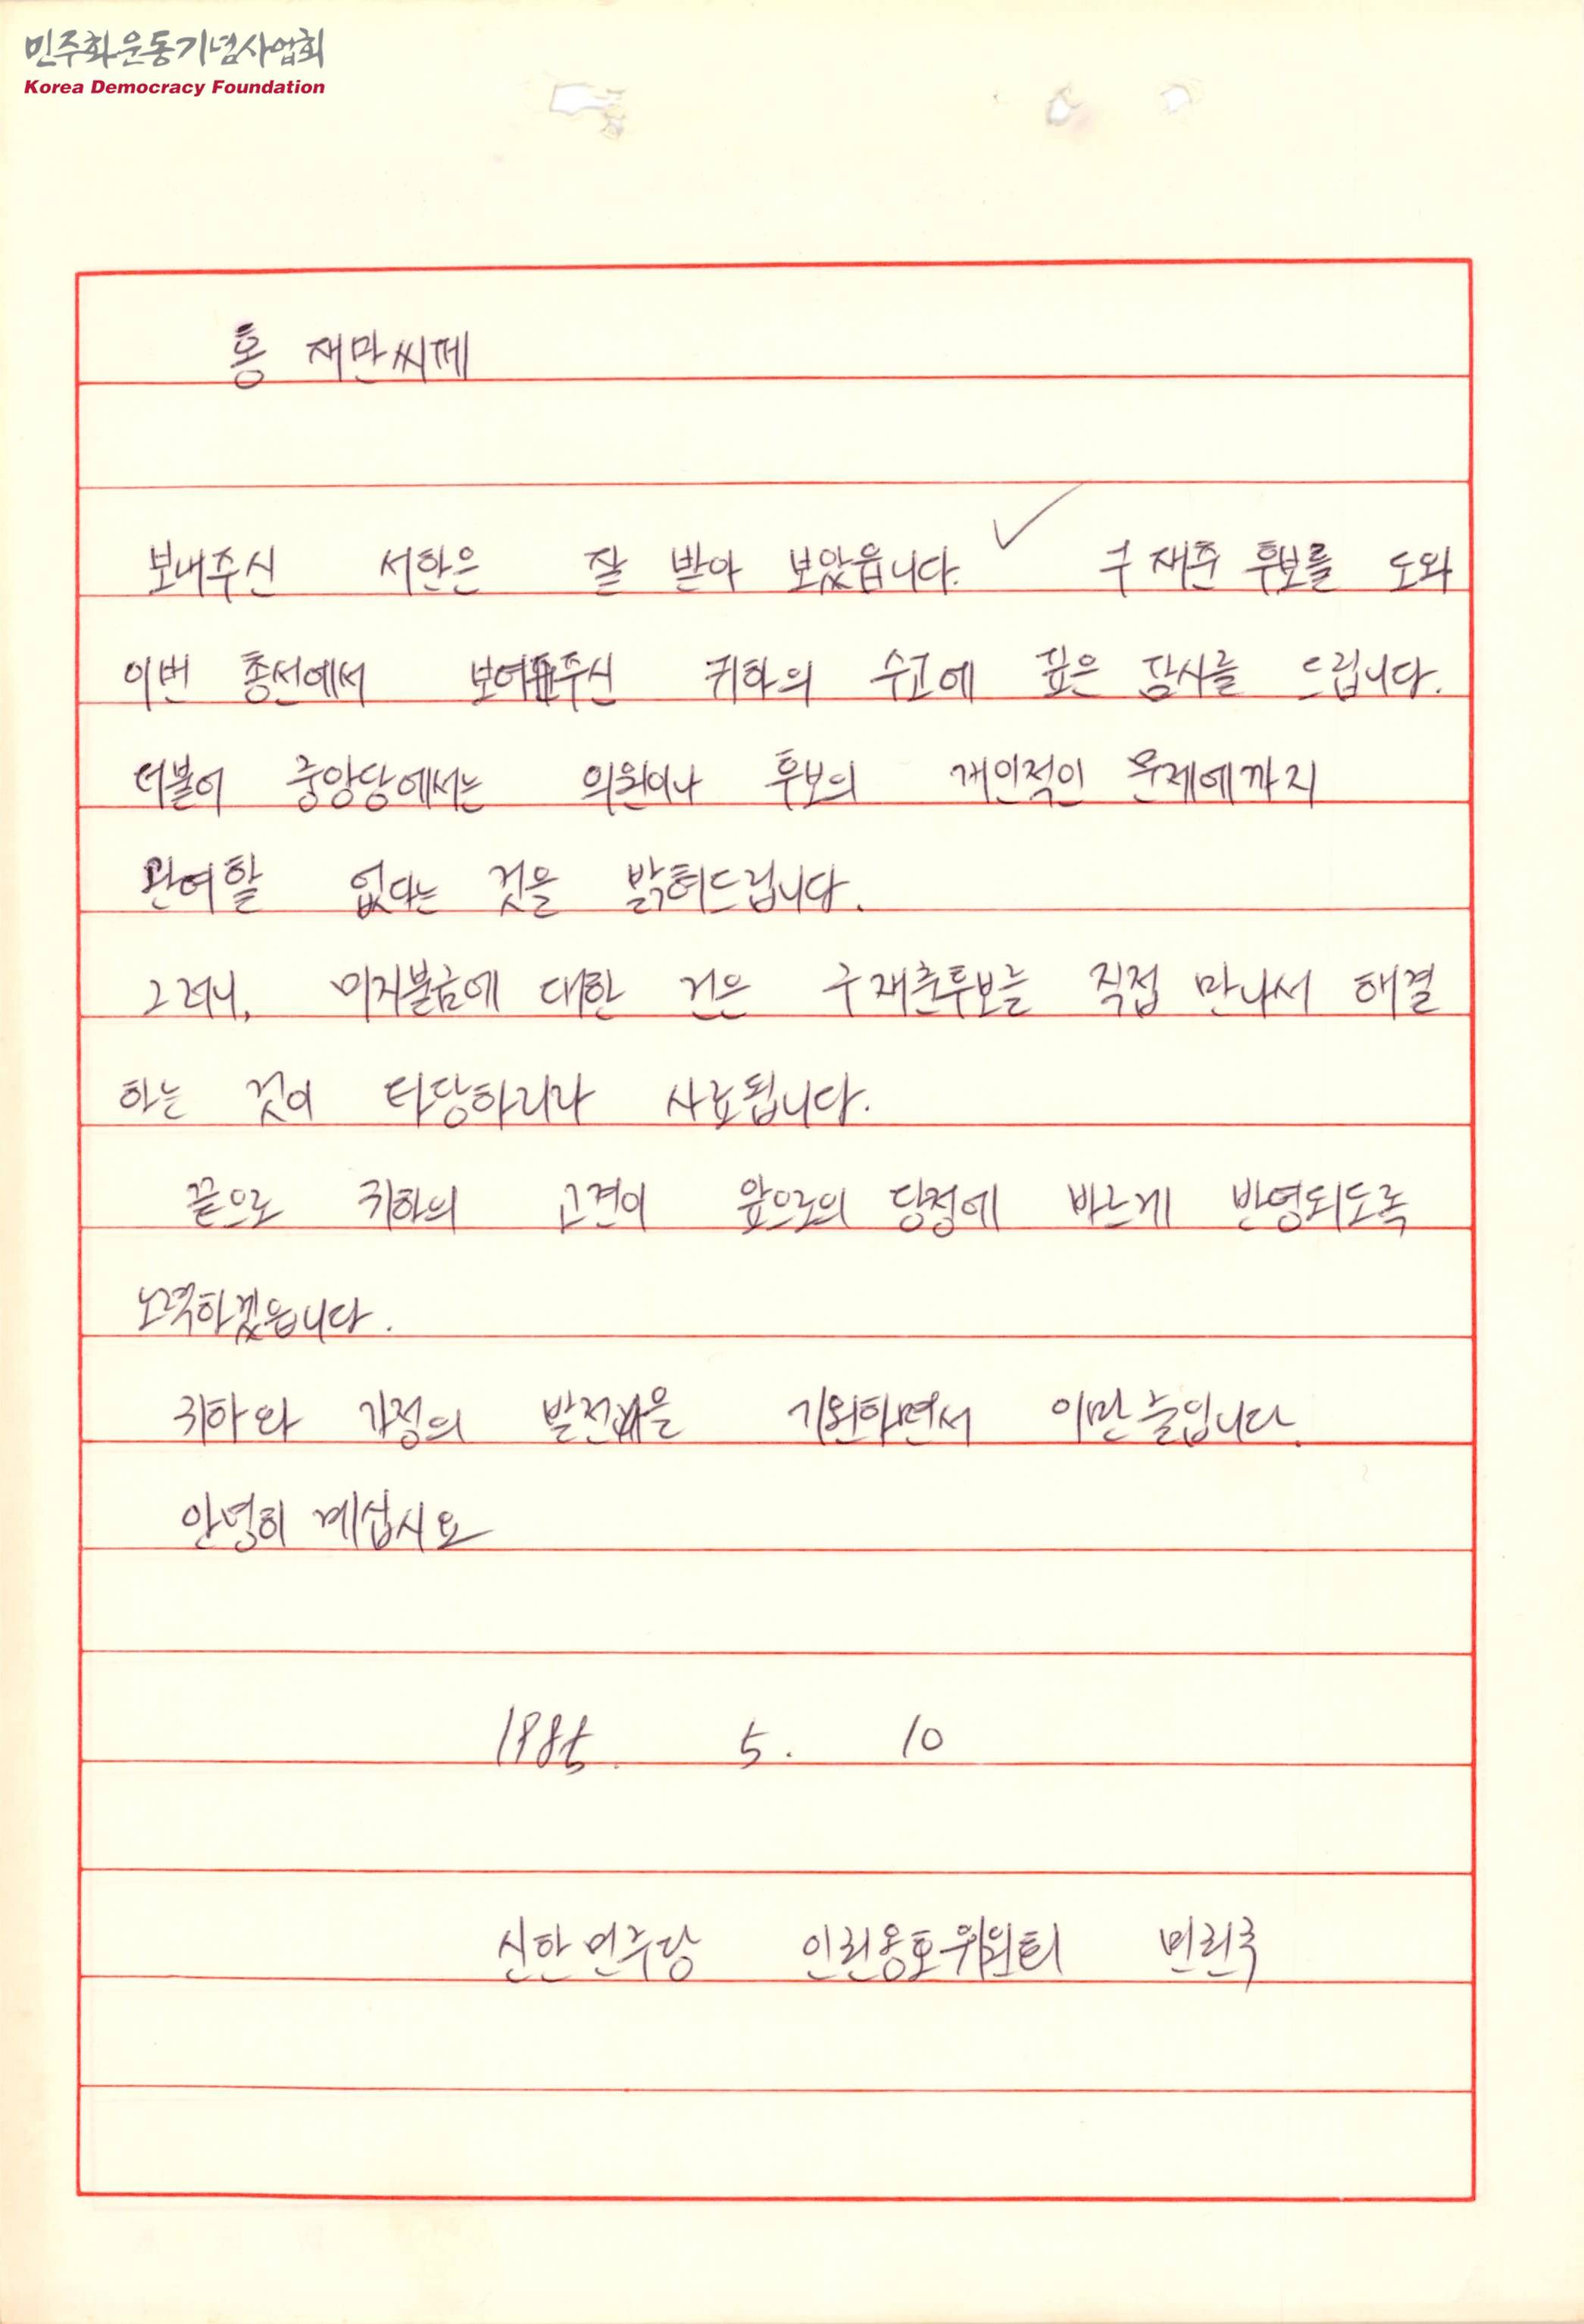 민주화운동기념사업회
Korea Democracy Foundation
홍 재만씨께
보내주신 서한은 잘 받아 보았읍니다. 구재춘 후보를 도와
이번 총선에서 보여주신 귀하의 수고에 깊은 감사를 드립니다.
더불어 중앙당에서는 의원이나 후보의 개인적인 문제에까지
관여할 없다는 것을 밝혀드립니다.
그러니, 미지불금에 대한 건은 구재춘후보를 직접 만나서 해결
하는 것이 타당하리라 사료됩니다.
끝으로 귀하의 고견이 앞으로의 당정에 바르게 반영되도록
노력하겠읍니다.
귀하와 가정의 발전을 기원하면서 이만 줄입니다.
안녕히 계십시요
1985. 5. 10
신한민주당 인권옹호위원회 민권국